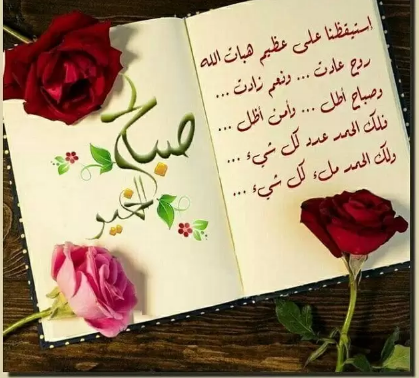 استيقظنا على عظيم هبات الله
روح عادت ... ونعم زادت ...
وصباح أطل ... وأمن أظل ...
فلك الحمد عدد كل شيء ...
ولك الحمد ملء كل شيء ...
صباح
الخير